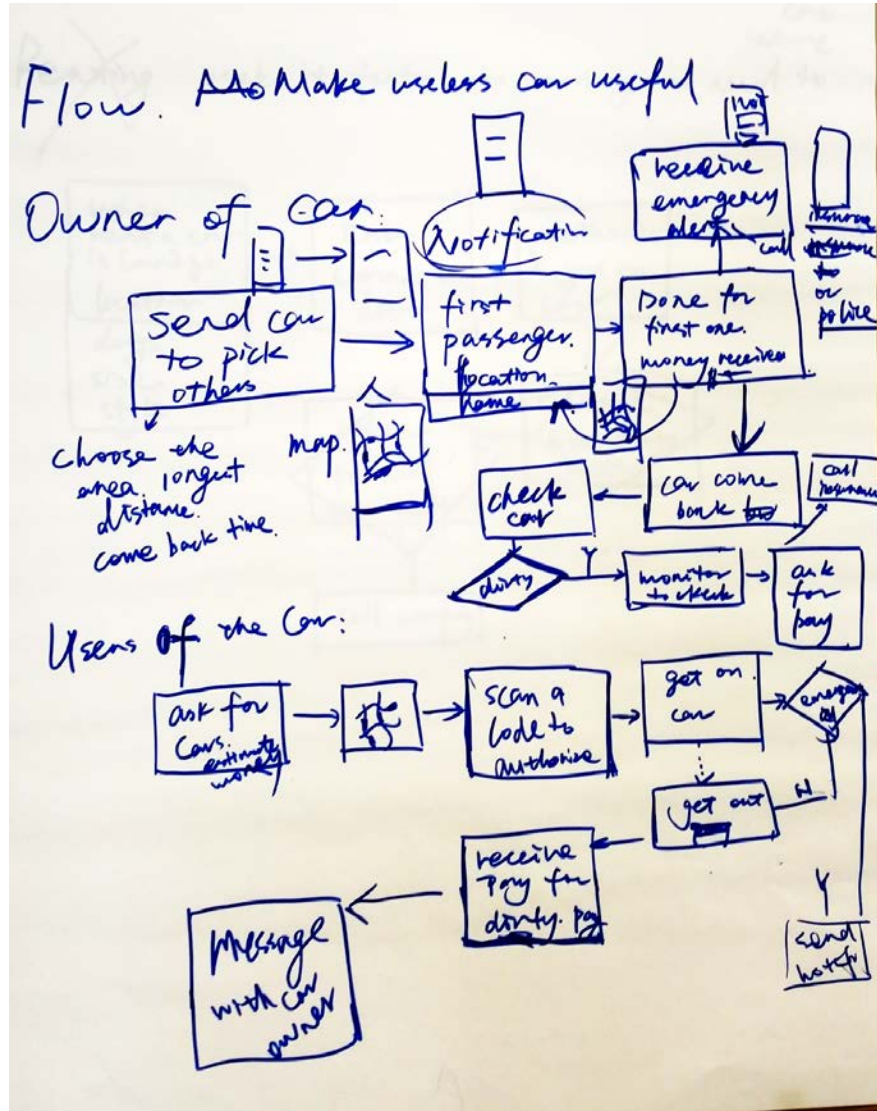 Flow. Make useless car useful
Owner of car:
Notification
receive
emergency
alert
call
insurance
or
police
send car
to pick
others
first
passenger.
location.
name
Done for
first one.
money received
choose the
area. longest
distance.
come back time.
map.
check
car
car come
back
call
insurance
dirty
Y
monitor
to check
ask
for
pay
Users of the Car:
ask for
cars.
estimate
money
scan a
code to
authorize
get on
car
get out
N
Y
receive
Pay for
dirty. pay
send
Message
with car
owner